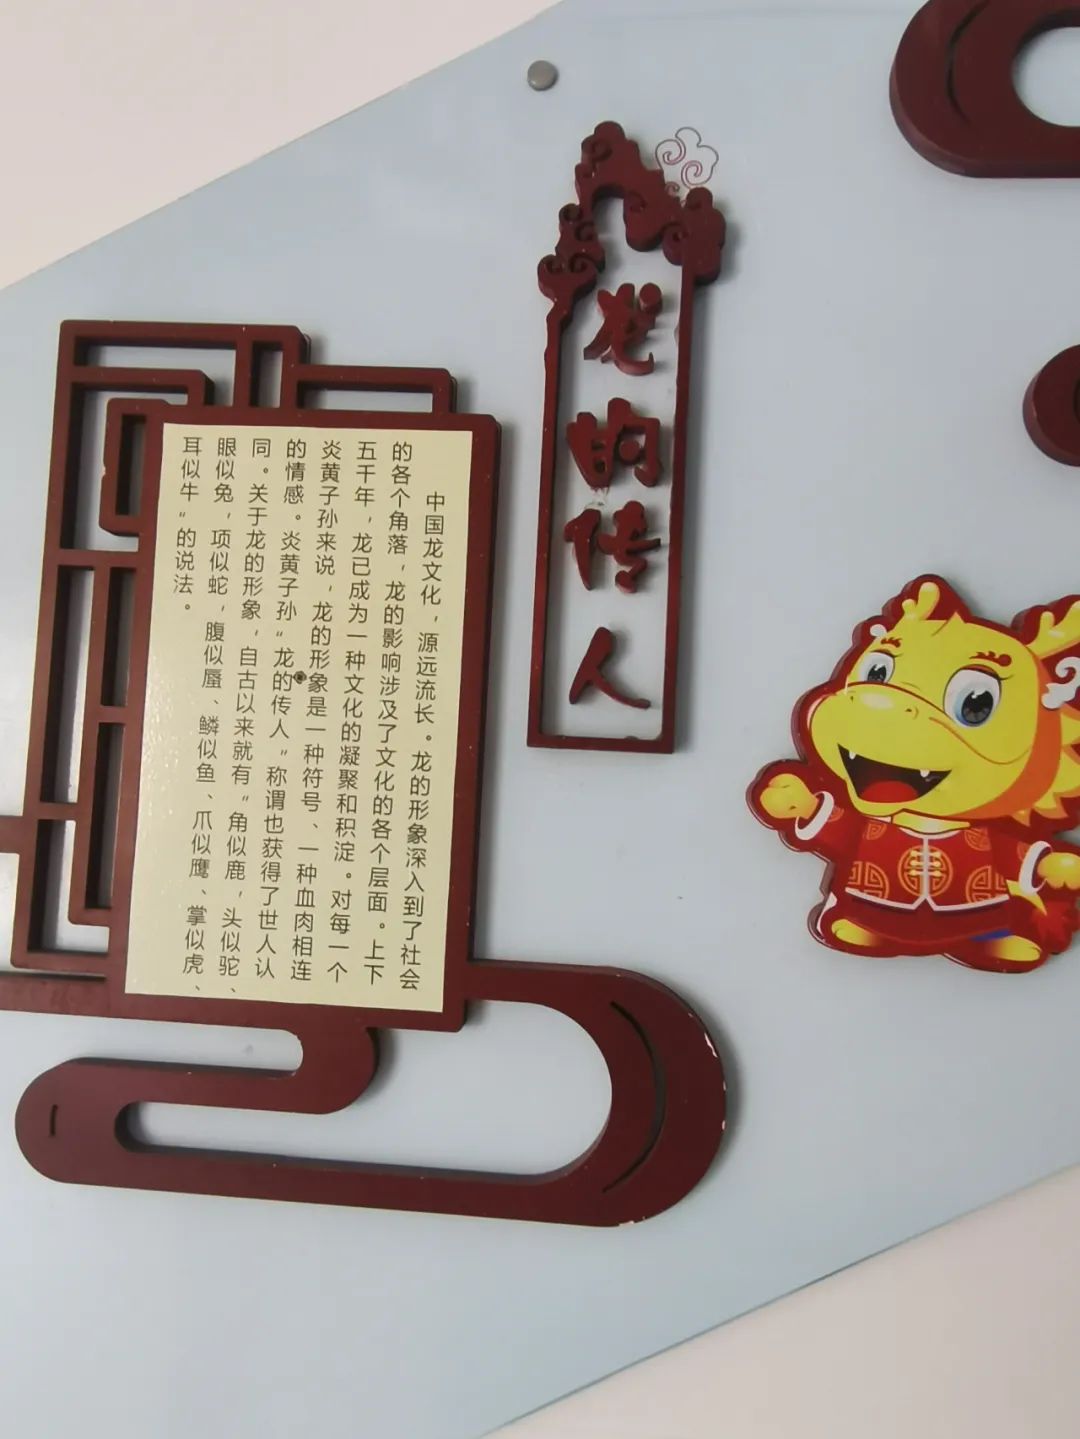 龙的传人
中国龙文化，源远流长。龙的形象深入到了社会
的各个角落，龙的影响涉及了文化的各个层面。上下
五千年，龙已成为一种文化的凝聚和积淀。对每一个
炎黄子孙来说，龙的形象是一种符号、一种血肉相连
的情感。炎黄子孙“龙的传人”称谓也获得了世人认
同。关于龙的形象，自古以来就有“角似鹿，头似驼、
眼似兔，项似蛇，腹似蜃、鳞似鱼、爪似鹰、掌似虎、
耳似牛“的说法。